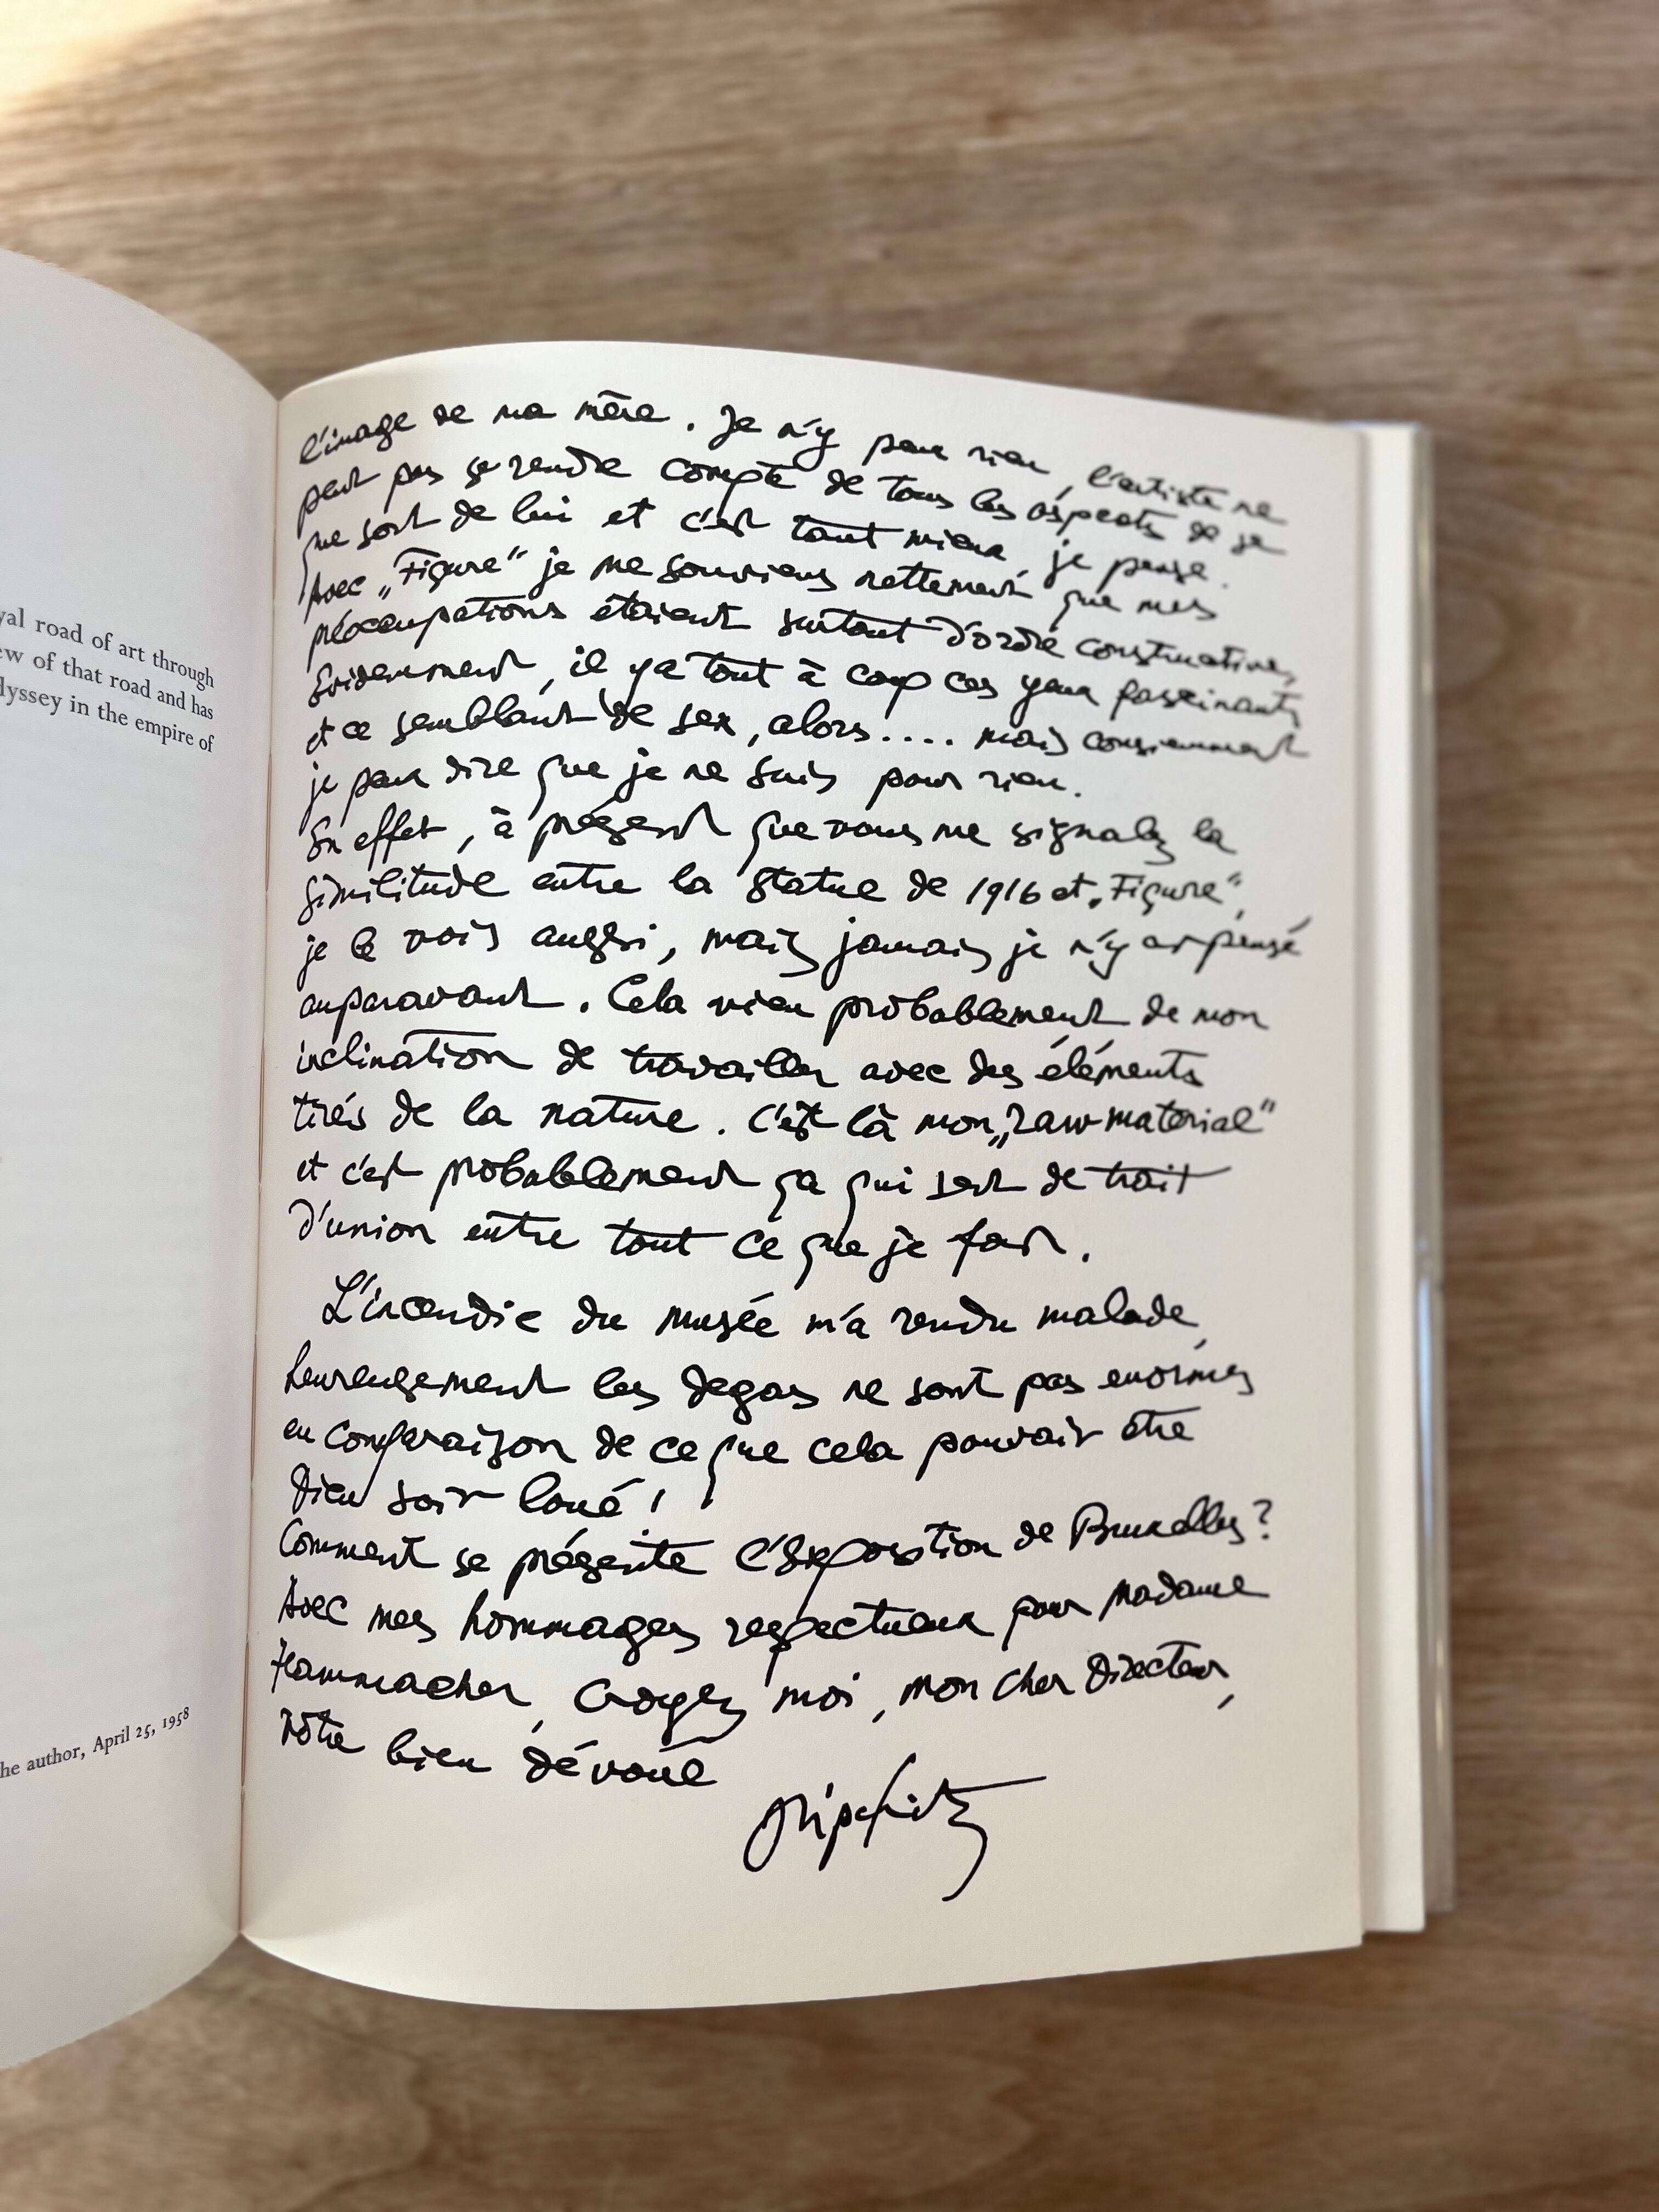 yal road of art through
ew of that road and has
lyssey in the empire of
he author, April 25, 1958
l'image de ma mère. Je n'y peux rien, l'artiste ne
peut pas se rendre compte de tous les aspects de ce
que sort de lui et c'est tant mieux, je pense.
Avec „Figure" je me souviens nettement que mes
préocupations étaient surtout d'ordre constructive,
Evidemment, il y a tout à coup ces yeux fascinants
et ce semblant de sex, alors.... mais consciemment
je peux dire que je ne suis pour rien.
En effet, à présent que vous me signalez la
similitude entre la statue de 1916 et „Figure",
je le vois aussi, mais jamais je n'y ai pensé
auparavant. Cela vien probablement de mon
inclination de travailler avec des éléments
tirés de la nature. C'est là mon „raw material"
et c'est probablement ça qui sert de trait
d'union entre tout ce que je fait.
L'incendie du musée m'a rendu malade,
heureusement les degas ne sont pas enormes
en comparaison de ce que cela pouvait être
Dieu soit loué!
Comment se présente l'Exposition de Bruxelles?
Avec mes hommages respectueux pour madame
Hammacher, croyez moi, mon cher Directeur,
votre bien dévoué
Lipchitz